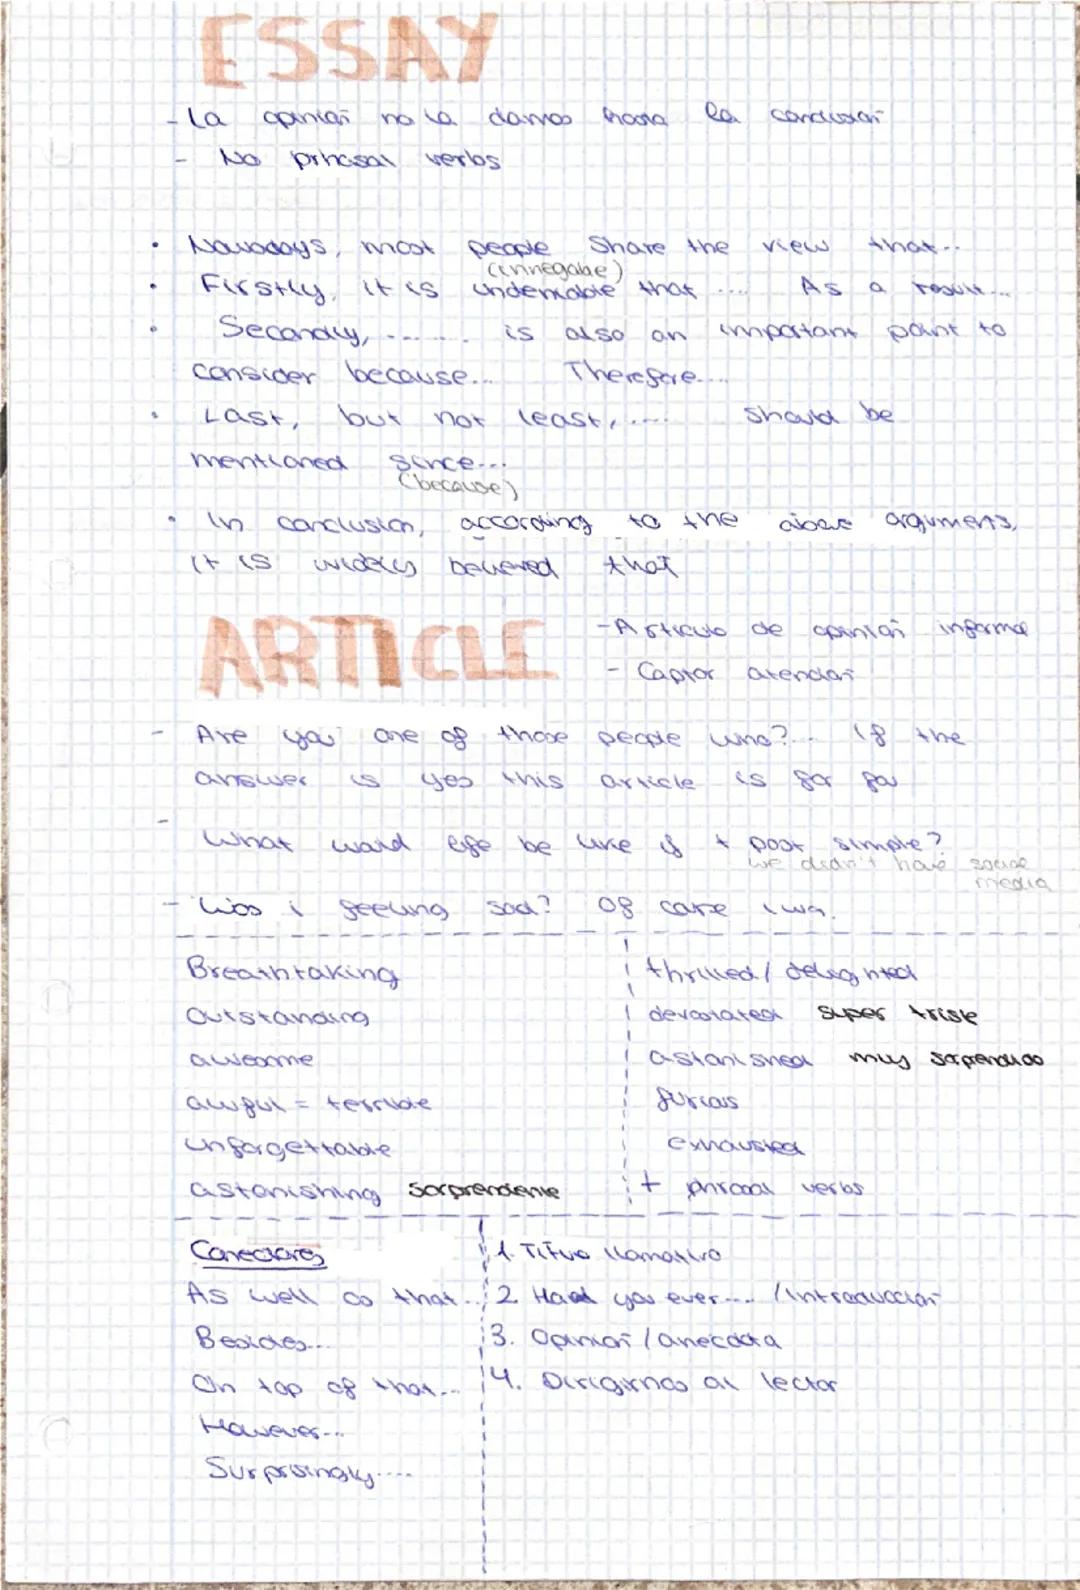 ESSAY
- La opinión no la damos hasta la conclusión
- No prhasal verbs
• Nowadays, most people share the view that...
(innegabe)
• Firstly, it is undeniable that .... As a result...
• Secondly, ....... is also an important point to
consider because... Therefore....
• Last, but not least, .... should be
mentioned since...
(because)
• In conclusion, according to the above arguments,
it is widely believed that
ARTICLE
- Articulo de opinión informal
- Captar atención
- Are you one of those people who?... If the
answer is yes this article is for you
- What would life be like if + past simple?
we didn't have social
media
- Was i feeling sad? Of carse i wa.
Breathtaking
thrilled / delighted
Outstanding
devastated super triste
awesome
astonished muy sorprendido
awful = terrible
furious
unforgettable
exhausted
astonishing sorprendente
+ phrasal verbs
Conectores
1. Título llamativo
As well as that...
2. Had you ever.... / introducción
Besides...
3. Opinión / anécdota
On top of that...
4. Dirigirnos al lector
However...
Surprisingly....